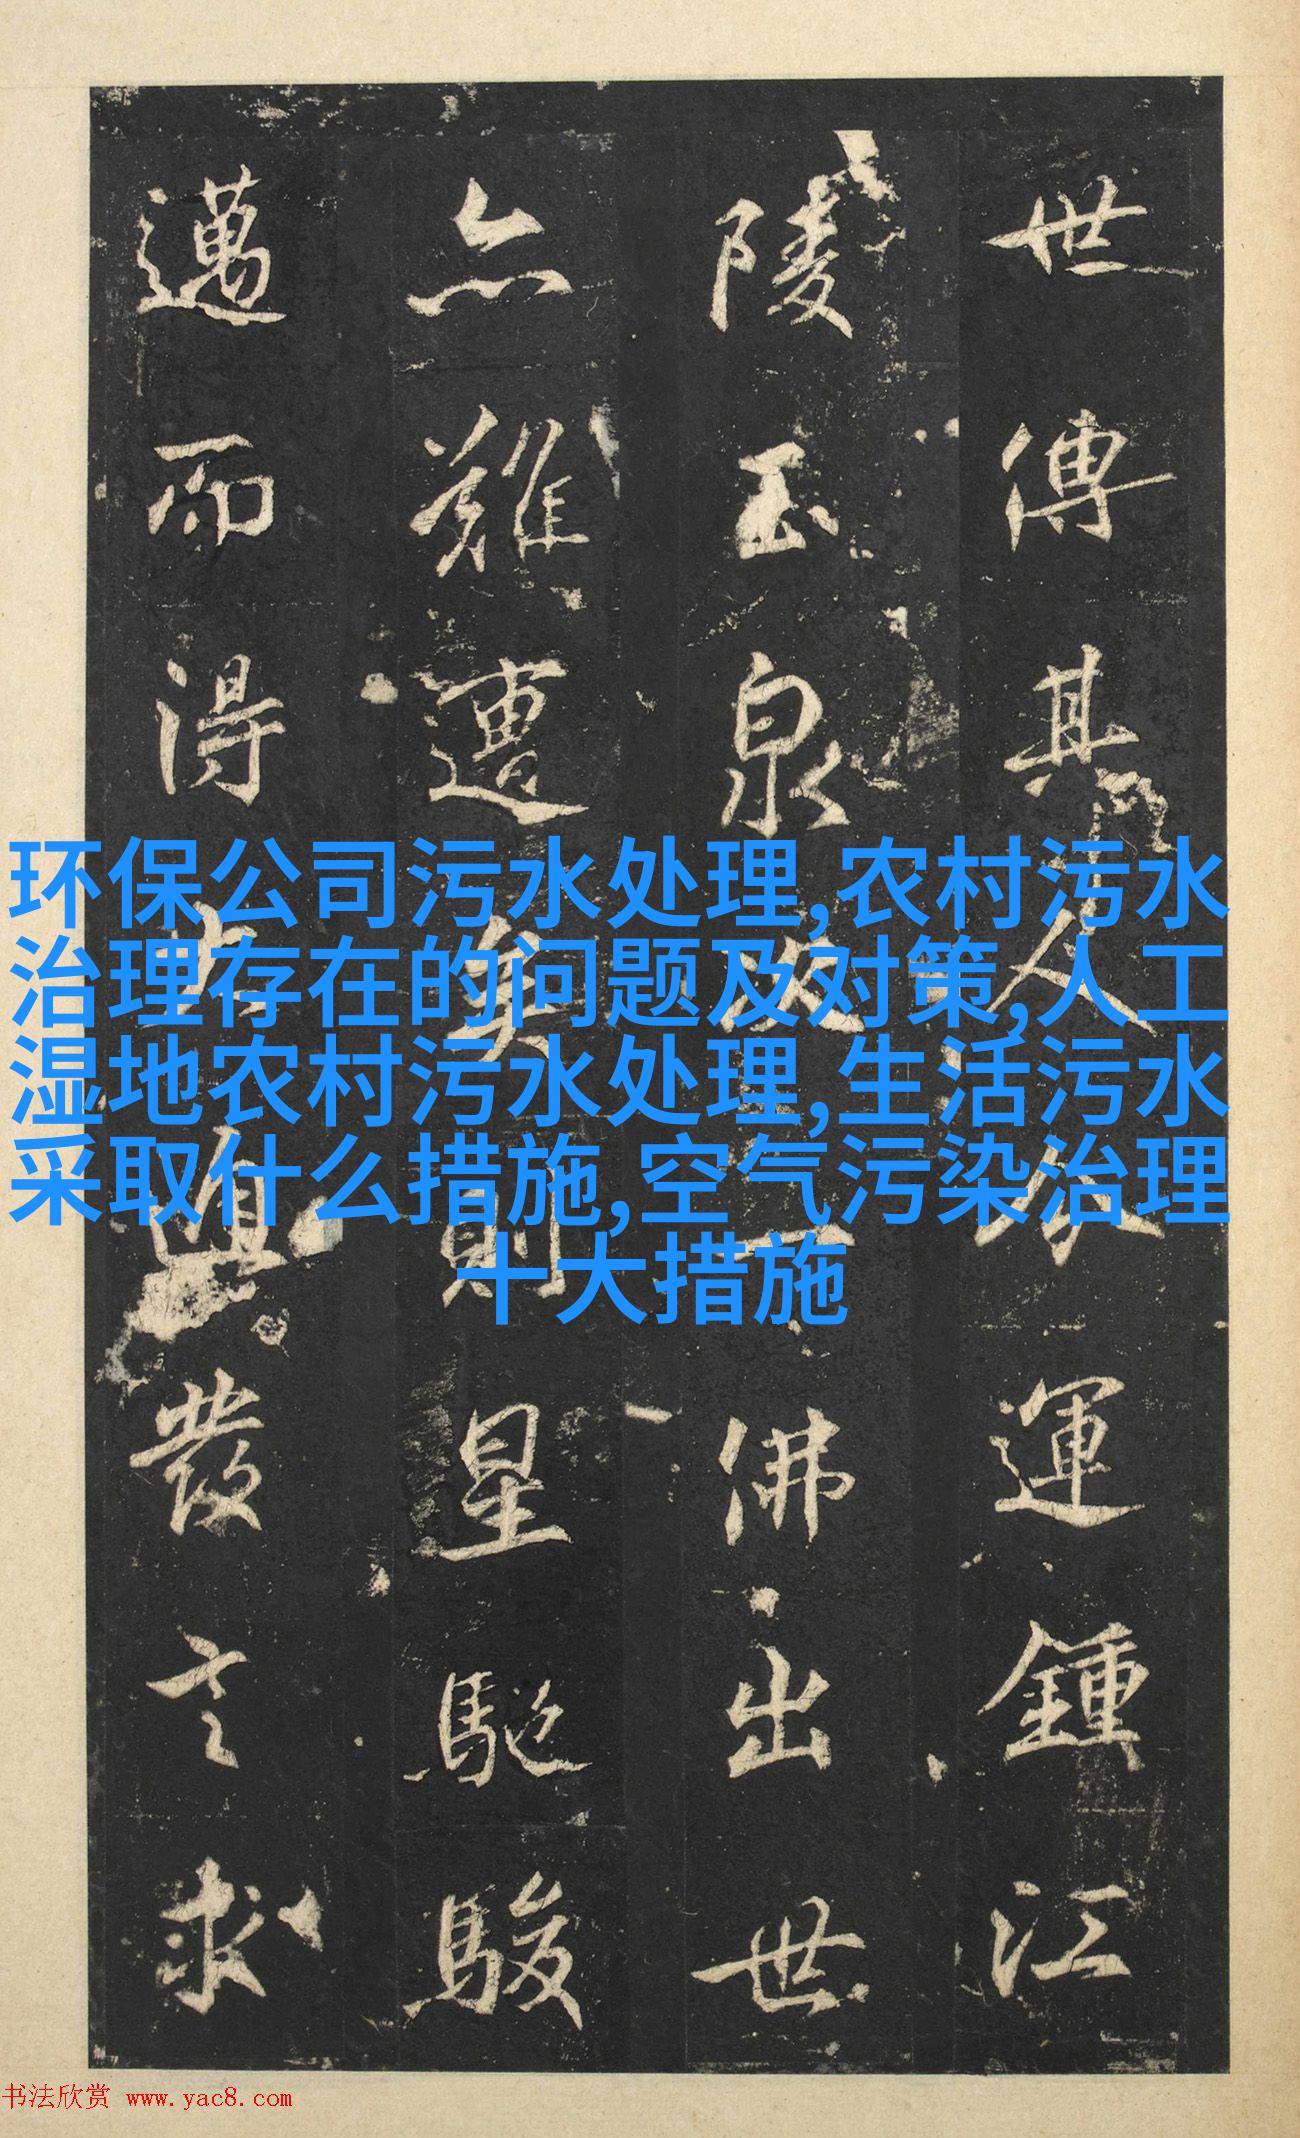 世傳其人運鍾江
陵玉泉一佛出世
亦難遭矣則星馳駿
邁而得發言求
环保公司污水处理,农村污水
治理存在的问题及对策,人工
湿地农村污水处理,生活污水
采取什么措施,空气污染治理
十大措施
书法欣赏 www.yac8.com